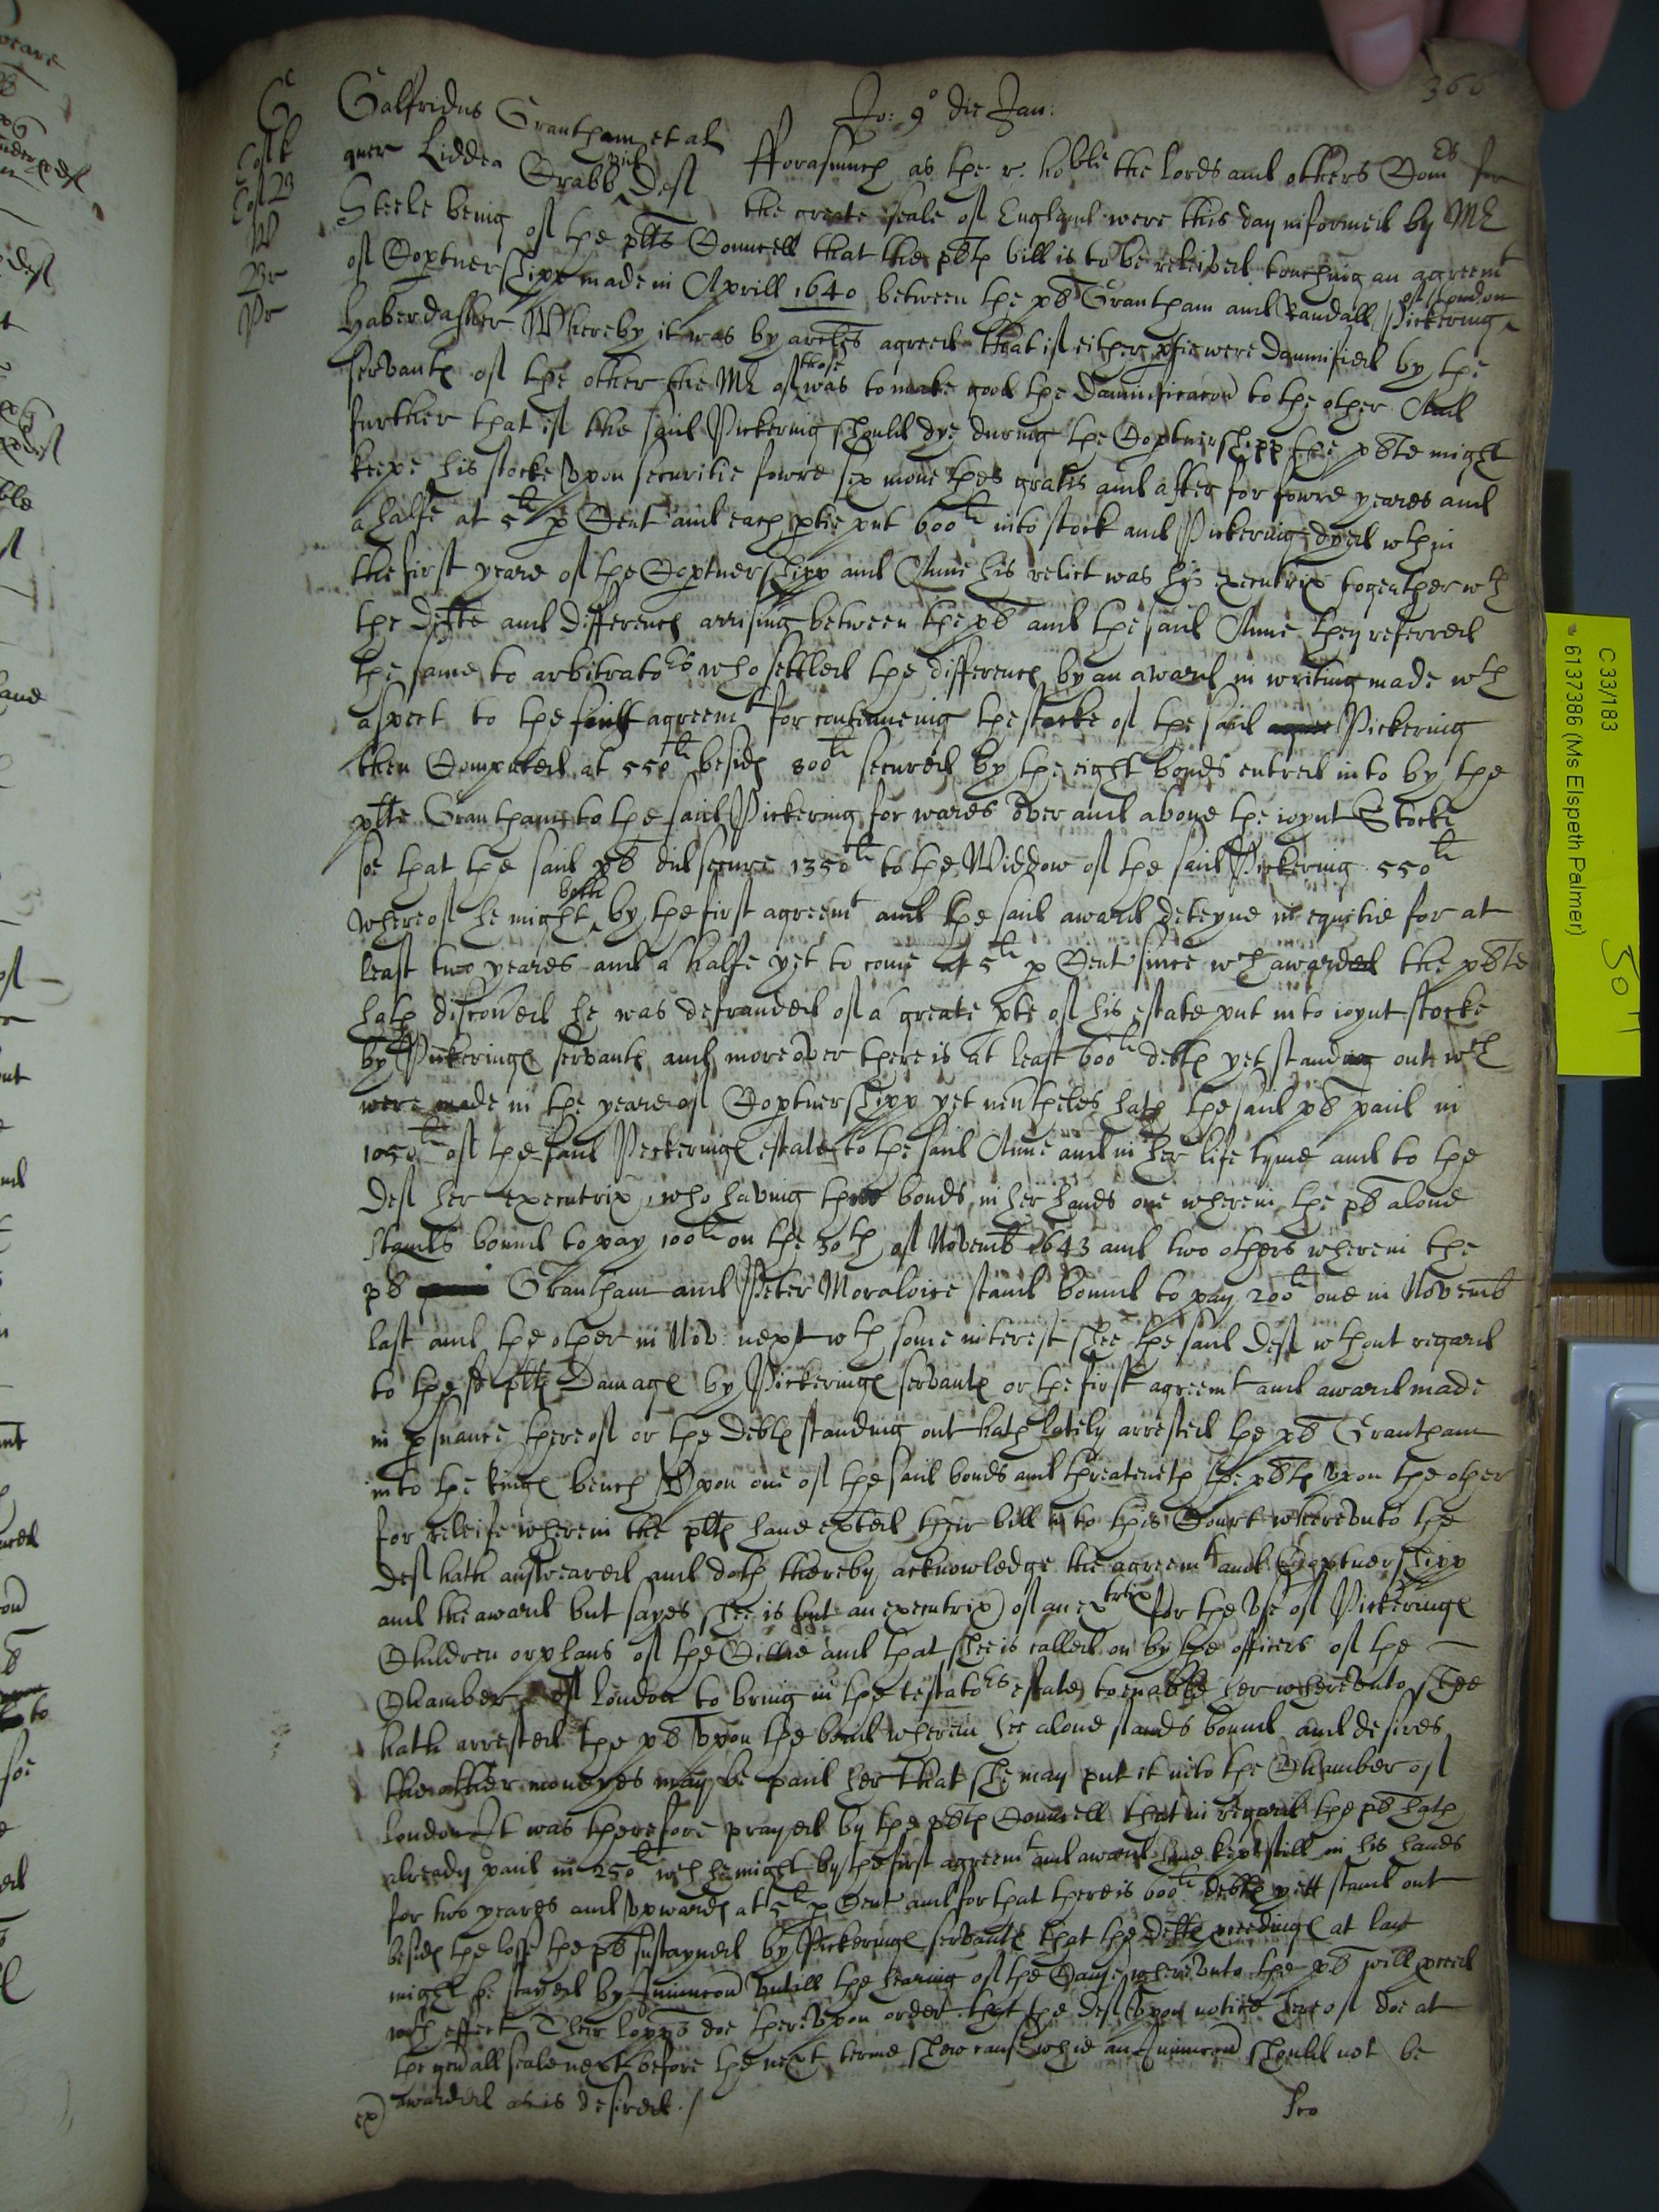 366
Jo: 9o die Jan:
Galfridus Grantham et al
quer Liddea Grabb vid Deft
fforasmuch as the r. hoble the lords and others Comrs for
the greate seale of England were this day informed by Mr
Steele being of the plts Councell that the plts bill is to be releived touching an agreemt
of Coptnershipp made in Aprill 1640 between the pl Grantham and Randall Pickering of London
haberdasher Whereby it was by arcles agreed that if either ptie were damnified by the
servants of the other the Mr of those was to make good the damnificacon to the other And
further that if the said Pickering should dye during the Coptnershipp the plte might
keepe his stocke upon securitie fowre sex monethes gratis and after for fowre yeares and
a halfe at 5li p Cent and each ptie put 600li into stock and Pickering dyed wthin
the first yeare of the Coptnershipp and Anne his relict was his executrix togeather wth
the defte and difference arrising between the pl and the said Anne they referred
the same to arbitrators who settled the difference by an award in writing made wth
aspect to the said agreemt for contineuing the stocke of the said Pickering
then Computed at 550li besides 800li secured by the eight bonds entred into by the
plte Grantham to the said Pickering for wares over and above the ioynt Stocke
soe that the said pl did secure 1350li to the Widdow of the said Pickering 550li
whereof he might both by the first agreemt and the said award deteyne in equitie for at
least two yeares and a halfe yet to come at 5li p Cent since wch award the plte
hath discovered he was defrauded of a greate pte of his estate put into ioynt stocke
by Pickeringes servants and moreover there is at least 600li debts yet standing out wch
were made in the yeare of Coptnershipp yet neutheles hath the said pl paid in
1050li of the said Pickeringes estate to the said Anne and in her life tyme and to the
Deft her executrix, who having three bonds in her hands one wherein the pl alone
stands bound to pay 100li on the 30th of Novemb 1643 and two others wherein the
pl Grantham and Peter Moraloice stand bound to pay 200li one in Novemb
last and the other in Nov: next wth some interest shee the said Deft wthout regard
to the sd plts Damages by Pickeringes servants or the first agreemt and award made
in psuance thereof or the Debts standing out hath lately arrested the pl Grantham
into the kings bench Upon one of the said bonds and threateneth the plts upon the other
for releife wherein the plts have exted their bill into this Court whereunto the
Deft hath answeared and doth thereby acknowledge the agreemt and Coptnershipp
and the award but sayes shee is but an executrix of an extrix for the Use of Pickeringes
Children orphans of the Cittie and that shee is called on by the officers of the
Chamber of London to bring in the testators estate to enable her whereunto shee
hath arrested the pl Upon the bond wherein hee alone stands bound and desires
the other moneyes may be paid her that she may put it into the Chamber of
London It was therefore prayed by the plts Councell that in regard the pl hath
already paid in 250li wch he might by the first agreemt and award have kept still in his hands
for two yeares and upwards at 5li p Cent and for that there is 600li debts yett stand out
besides the losse the pl sustayned by Pickeringes servants that the Defts pceedings at law
might be stayed by Iniuncon Untill the hearing of the Cause whereunto the pl will pceed
wth effect Their lopps doe thereupon order that the Deft upon notice hereof doe at
the genall seale next before the next terme shew cause whie an Iniuncon should not be
ex) awarded as is desired./
C 33/183
6137386 (Ms Elspeth Palmer)